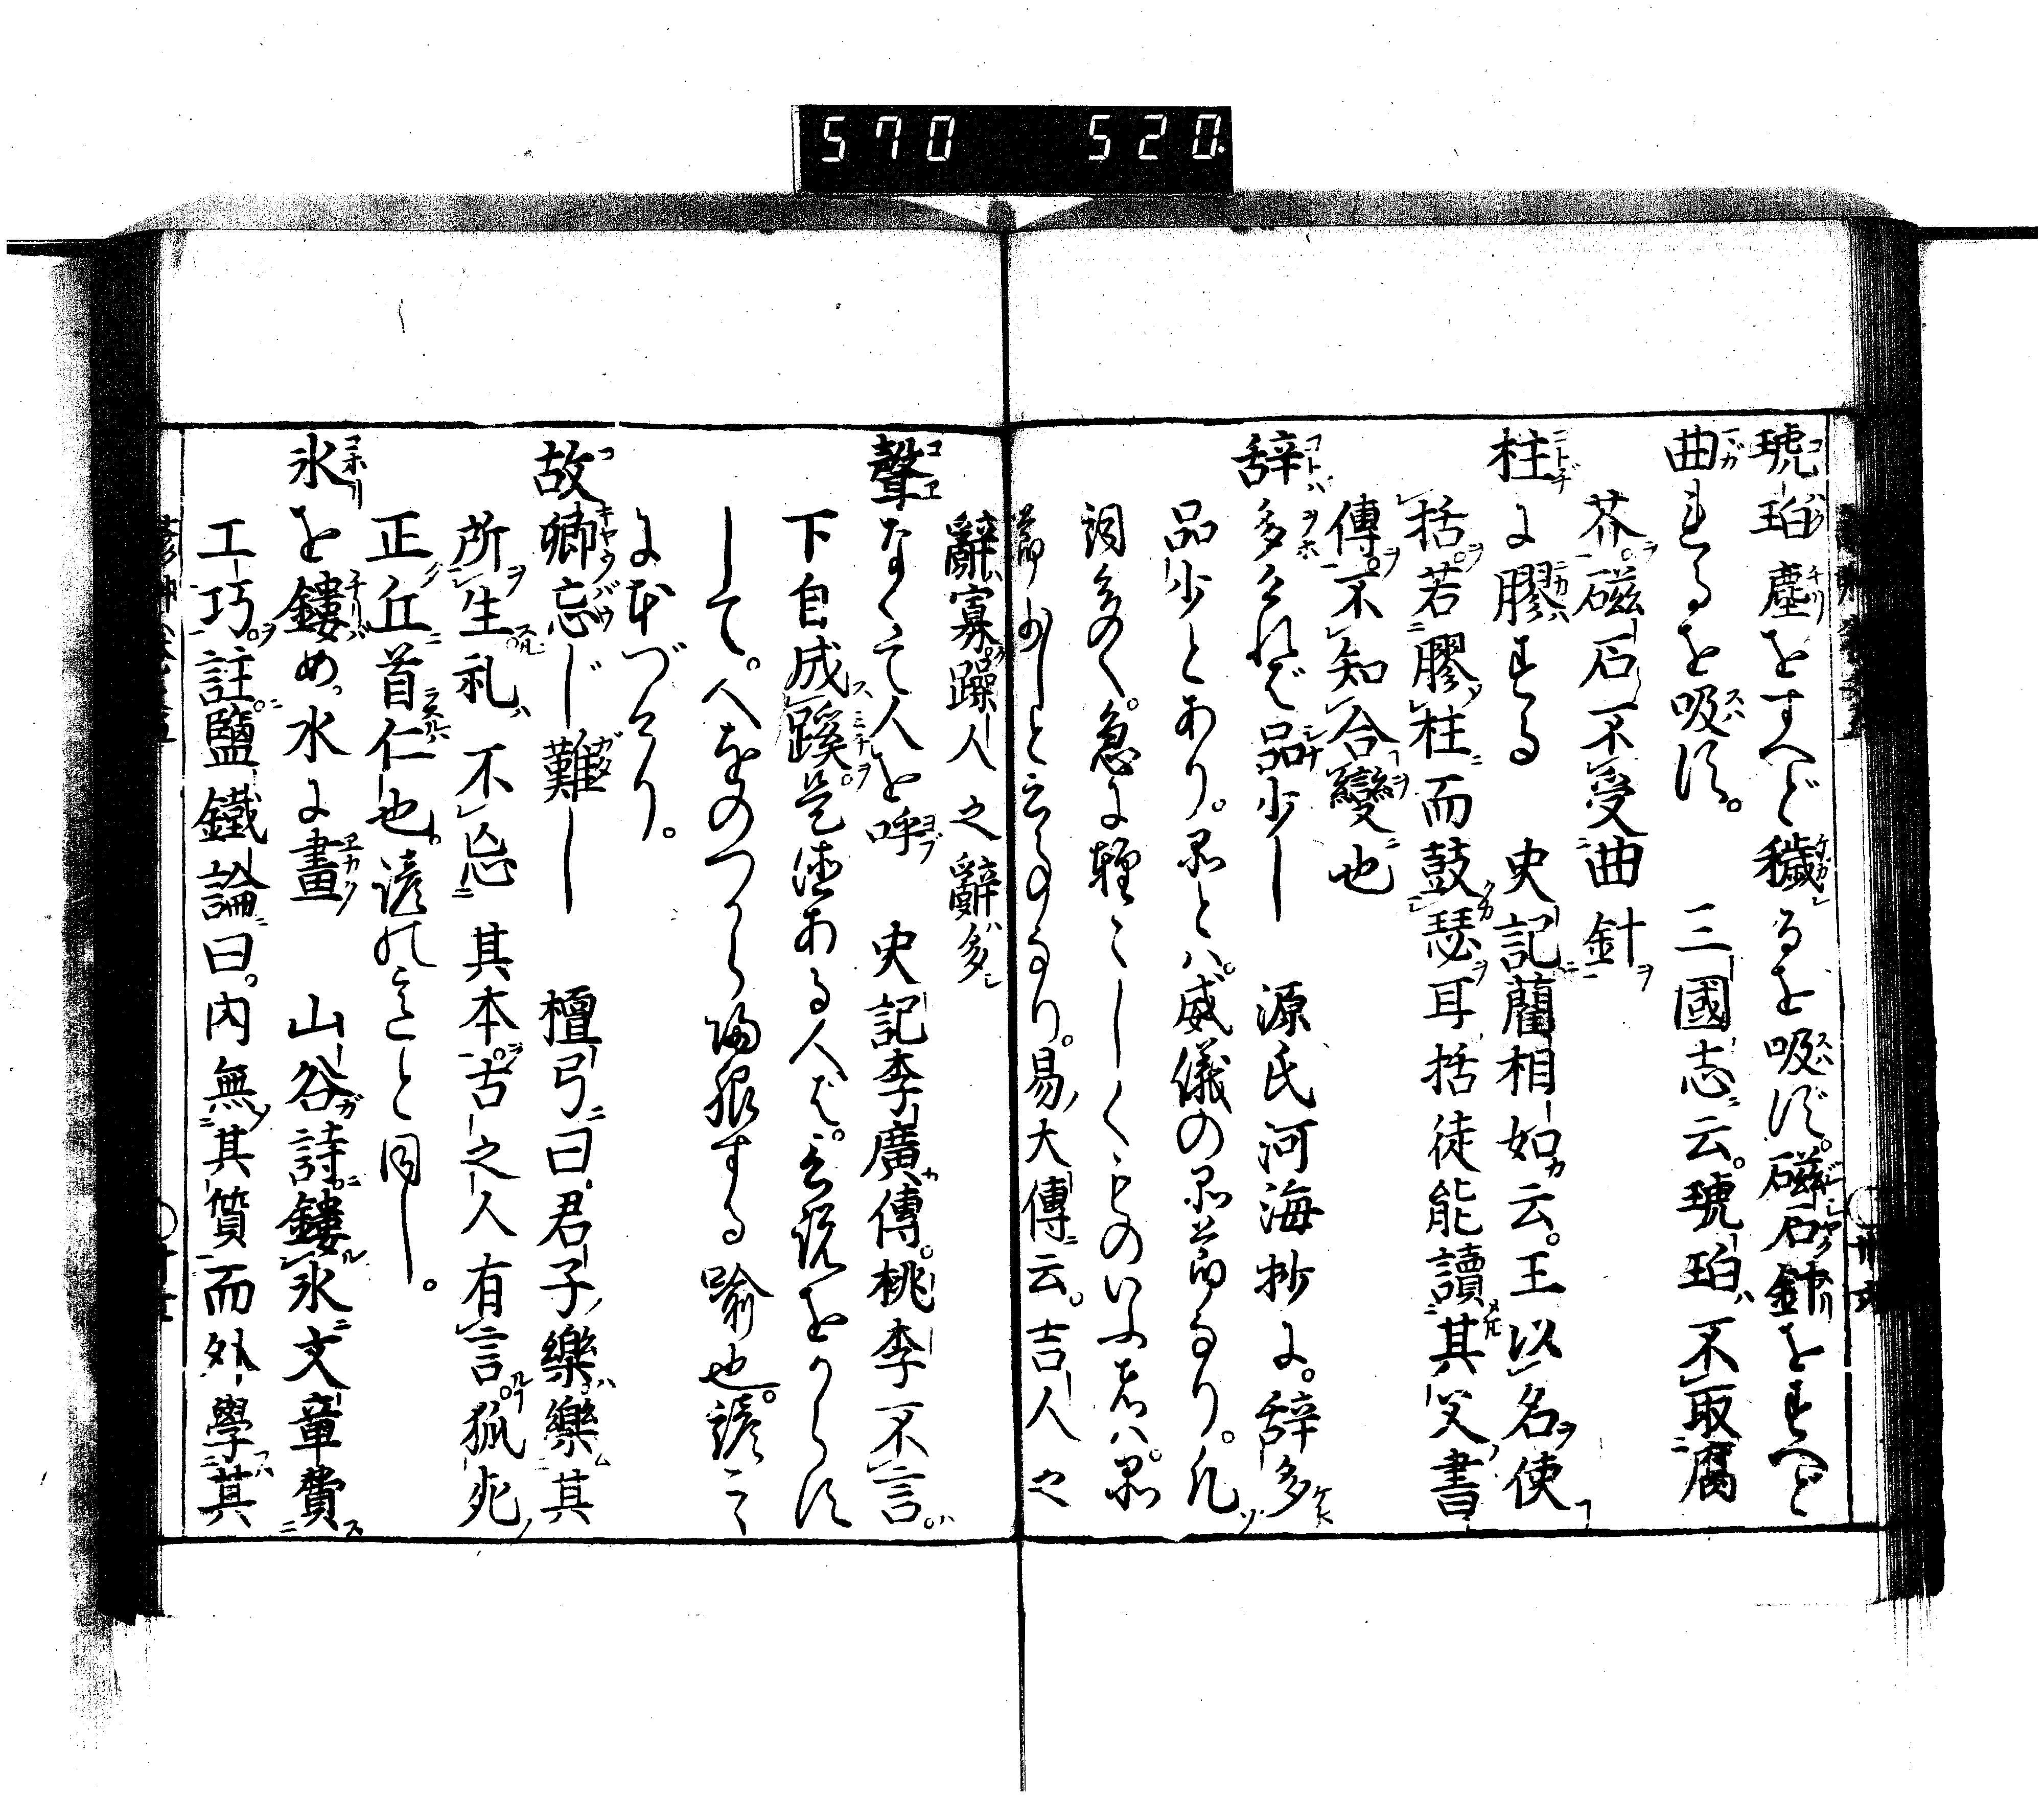 570 520
琥珀塵をすへど穢るを吸ず磁石針をすへど
曲れるを吸ず。 三國志云。琥珀不取腐
芥。磁石不受曲針
柱に膠する 史記藺相如云。王以名使
括。若膠柱而鼓瑟耳括徒能讀其父書
傳。不知合變也
辞多ければ品少し 源氏河海抄に。辞多
品少とあり。品とハ。威儀の品節なり。凡
詞多く。急に軽〻しくものいふ者ハ。品
節少しと云るなり。易大傳云。吉人之
辭寡。躁人之辭多
聲なくて人を呼 史記李廣傳。桃李不言。
下自成蹊。是徳ある人は。言説をからず
して。人をのつから帰服する喩也。諺に
よ
故郷忘じ難し 檀弓曰。君子樂樂其
所生礼不忘其本。古之人有言。狐死
正丘首仁也。諺の意と同し。
氷を鏤め水に畫 山谷詩。鏤氷文章費
工巧。註。鹽鐵論曰。内無其質而外學其